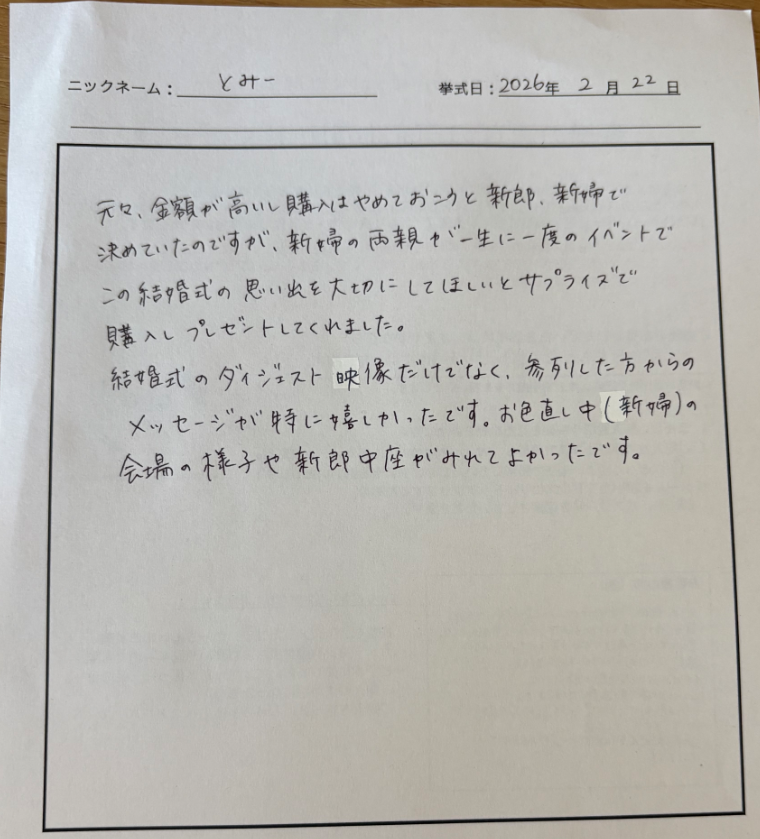 ニックネーム： とみー 挙式日：2026年 2月22日
元々、金額が高いし購入はやめておこうと新郎、新婦で
決めていたのですが、新婦の両親が一生に一度のイベントで
この結婚式の思い出を大切にしてほしいとサプライズで
購入しプレゼントしてくれました。
結婚式のダイジェスト映像だけでなく、参列した方からの
メッセージが特に嬉しかったです。お色直し中(新婦)の
会場の様子や新郎中座がみれてよかったです。